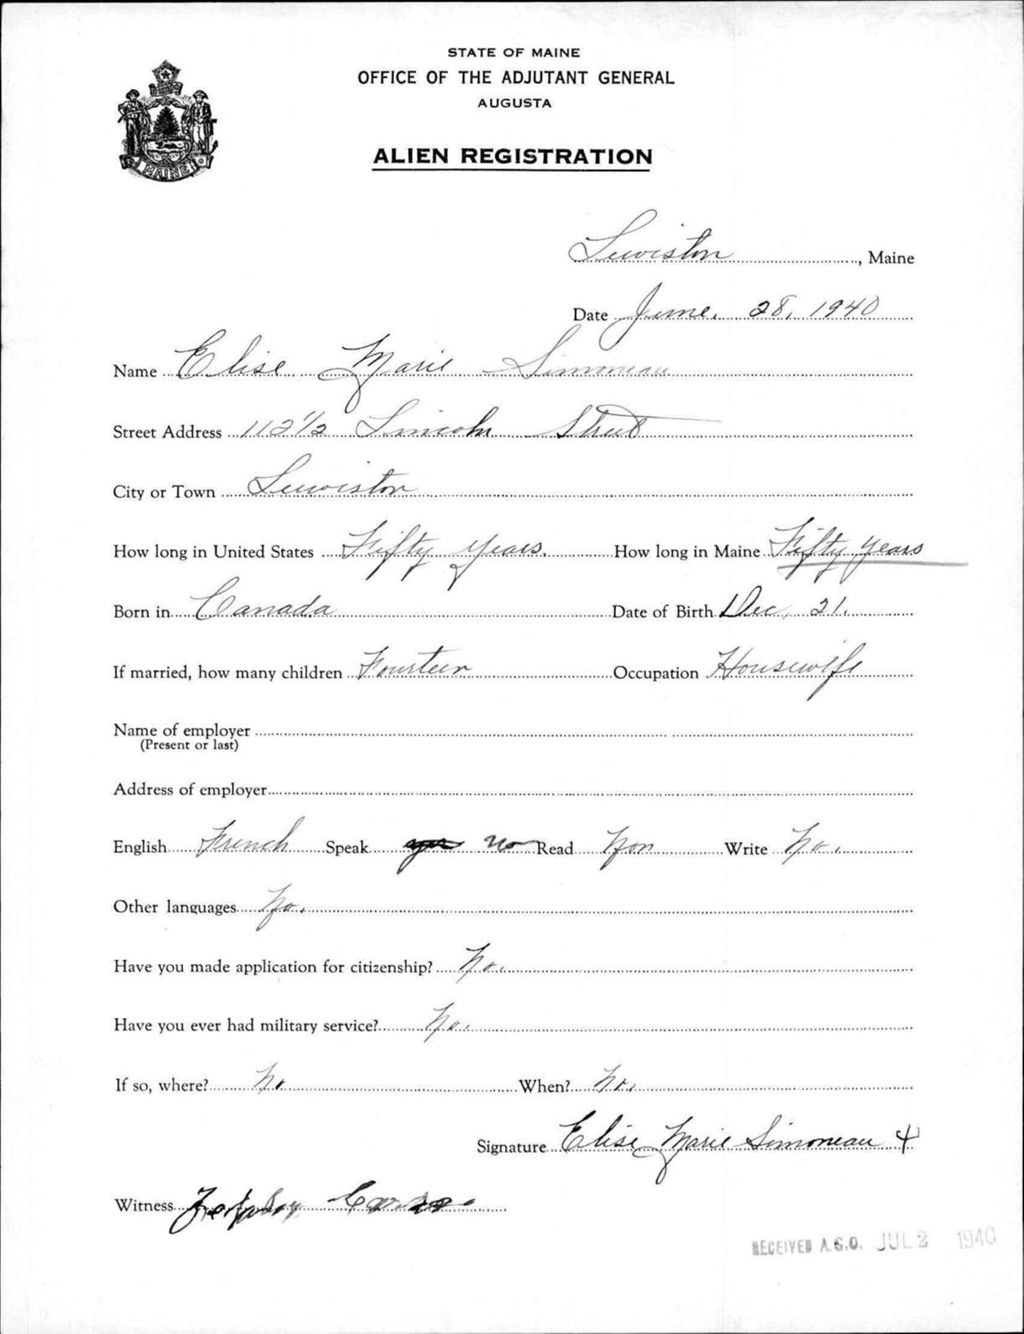 STATE OF MAINE
OFFICE OF THE ADJUTANT GENERAL
AUGUSTA
ALIEN REGISTRATION
MAINE
Lewiston, Maine
Date June. 28, 1940
Name Elise Marie Simoneau
Street Address 112 1/2 Lincoln Street
City or Town Lewiston
How long in United States Fifty years. How long in Maine Fifty years
Born in Canada Date of Birth Dec. 21.
If married, how many children Fourteen Occupation Housewife
Name of employer
(Present or last)
Address of employer
English French Speak yes no Read Non Write No.
Other languages No.
Have you made application for citizenship? No.
Have you ever had military service? No.
If so, where? No When? No.
Signature Elise Marie Simoneau
Witness
RECEIVED A.G.O. JUL 2 1940